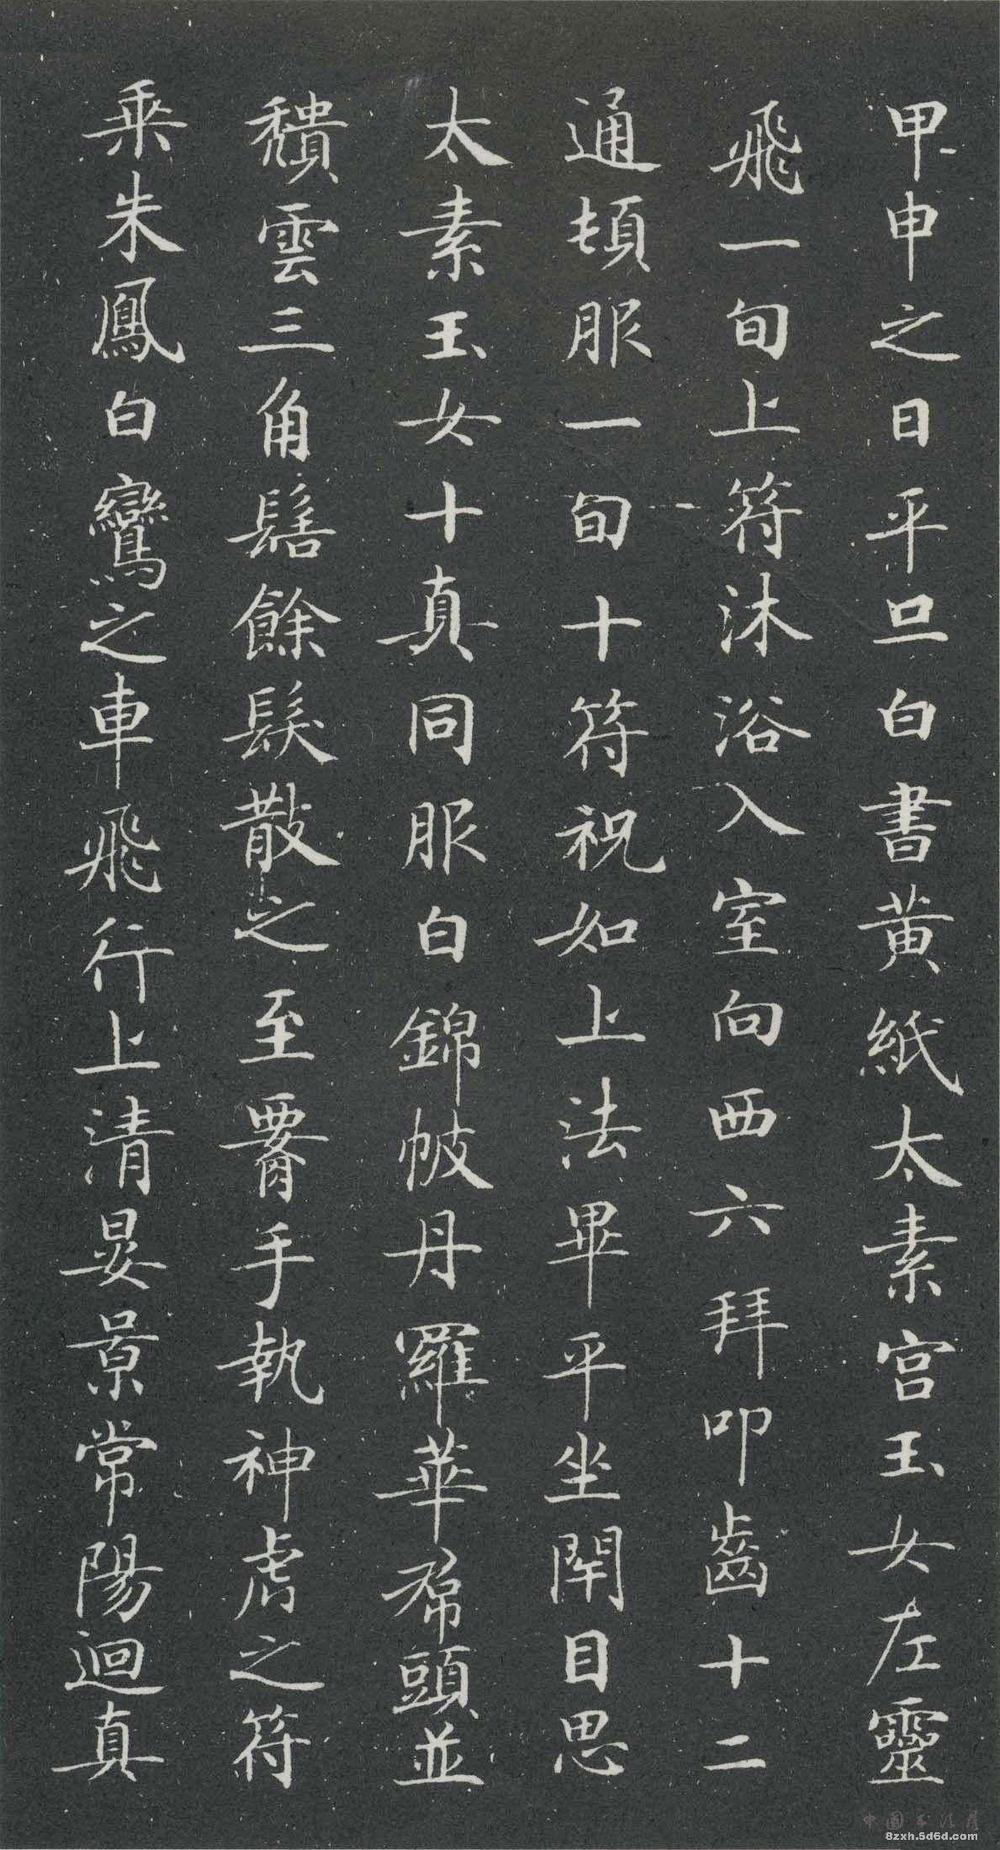 甲申之日平旦白書黄紙太素宫玉女左靈
飛一旬上符沐浴入室向西六拜叩齒十二
通頓服一旬十符祝如上法畢平坐閉目思
太素玉女十真同服白錦帔丹羅華帬頭並
穨雲三角髻餘髮散之至署手執神虎之符
乘朱鳳白鸞之車飛行上清晏景常陽迴真
中國書法屋
8zxh.5d6d.com